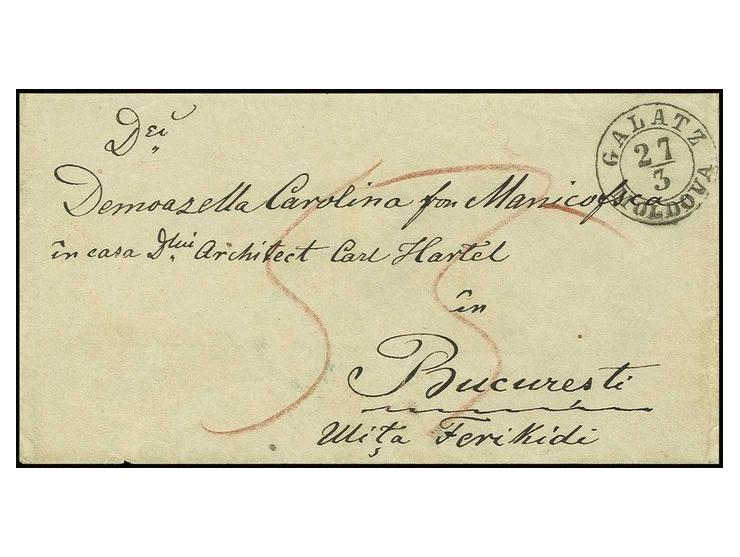 Dei
Demoazella Carolina fon Manicofsca
în casa Dlui Architect Carl Hartel
în
Bucuresti
Ulița Ferikidi
GALATZ
27
3
MOLDOVA